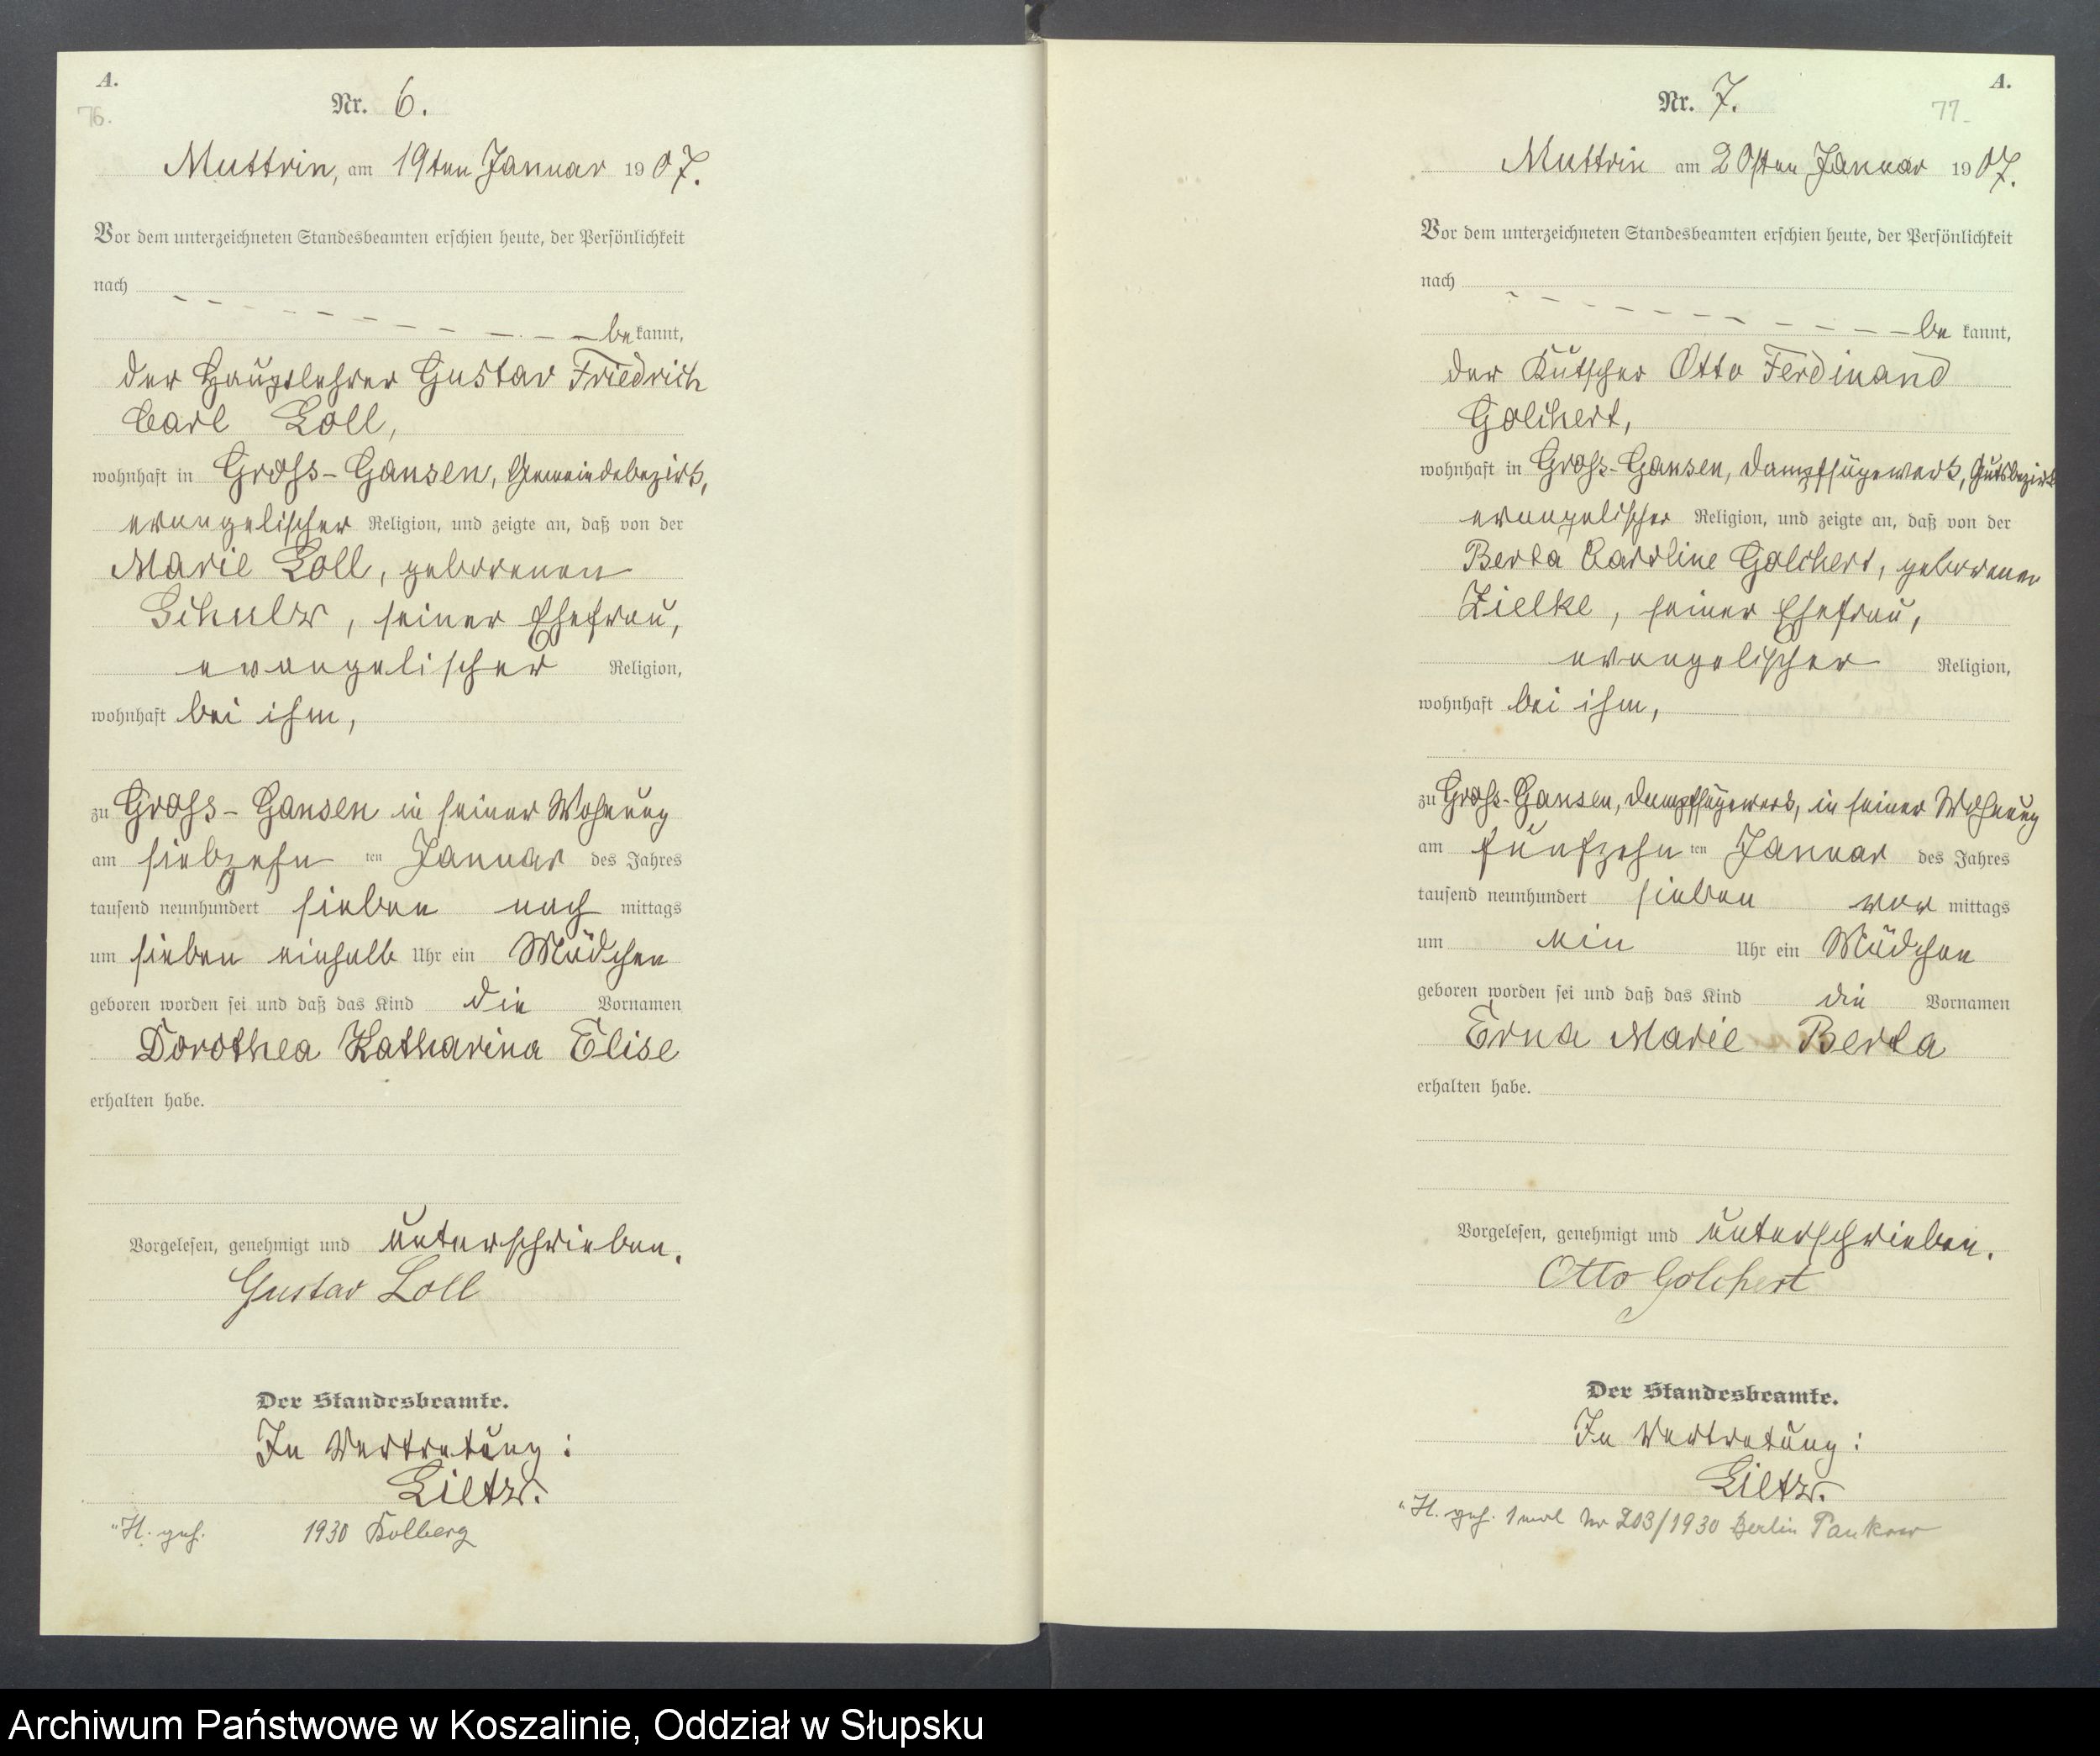 A.
76.
Nr. 6.
Muttrin, am 19ten Januar 1907.
Vor dem unterzeichneten Standesbeamten erschien heute, der Persönlichkeit
nach
be kannt,
der Hauptlehrer Gustav Friedrich
Carl Loll,
wohnhaft in Gross-Gansen, Gemeindebezirk,
evangelischer Religion, und zeigte an, daß von der
Marie Loll, geborenen
Schulz, seiner Ehefrau,
evangelischer Religion,
wohnhaft bei ihm,
zu Gross-Gansen in seiner Wohnung
am siebzehn ten Januar des Jahres
tausend neunhundert sieben nach mittags
um sieben einhalb Uhr ein Mädchen
geboren worden sei und daß das Kind die Vornamen
Dorothea Katharina Elise
erhalten habe.
Vorgelesen, genehmigt und unterschrieben.
Gustav Loll
Der Standesbeamte.
In Vertretung:
Lietz.
"H. geh. 1930 Kolberg
A.
77.
Nr. 7.
Muttrin am 20sten Januar 1907.
Vor dem unterzeichneten Standesbeamten erschien heute, der Persönlichkeit
nach
be kannt,
der Kutscher Otto Ferdinand
Golchert,
wohnhaft in Gross-Gansen, Dampfsägewerk, Gutsbezirk
evangelischer Religion, und zeigte an, daß von der
Berta Caroline Golchert, geborenen
Zielke, seiner Ehefrau,
evangelischer Religion,
wohnhaft bei ihm,
zu Gross-Gansen, Dampfsägewerk, in seiner Wohnung
am fünfzehn ten Januar des Jahres
tausend neunhundert sieben vor mittags
um ein Uhr ein Mädchen
geboren worden sei und daß das Kind die Vornamen
Erna Marie Berta
erhalten habe.
Vorgelesen, genehmigt und unterschrieben.
Otto Golchert
Der Standesbeamte.
In Vertretung:
Lietz.
"H. geh. 1 mal Nr 203/1930 Berlin Pankow
Archiwum Państwowe w Koszalinie, Oddział w Słupsku